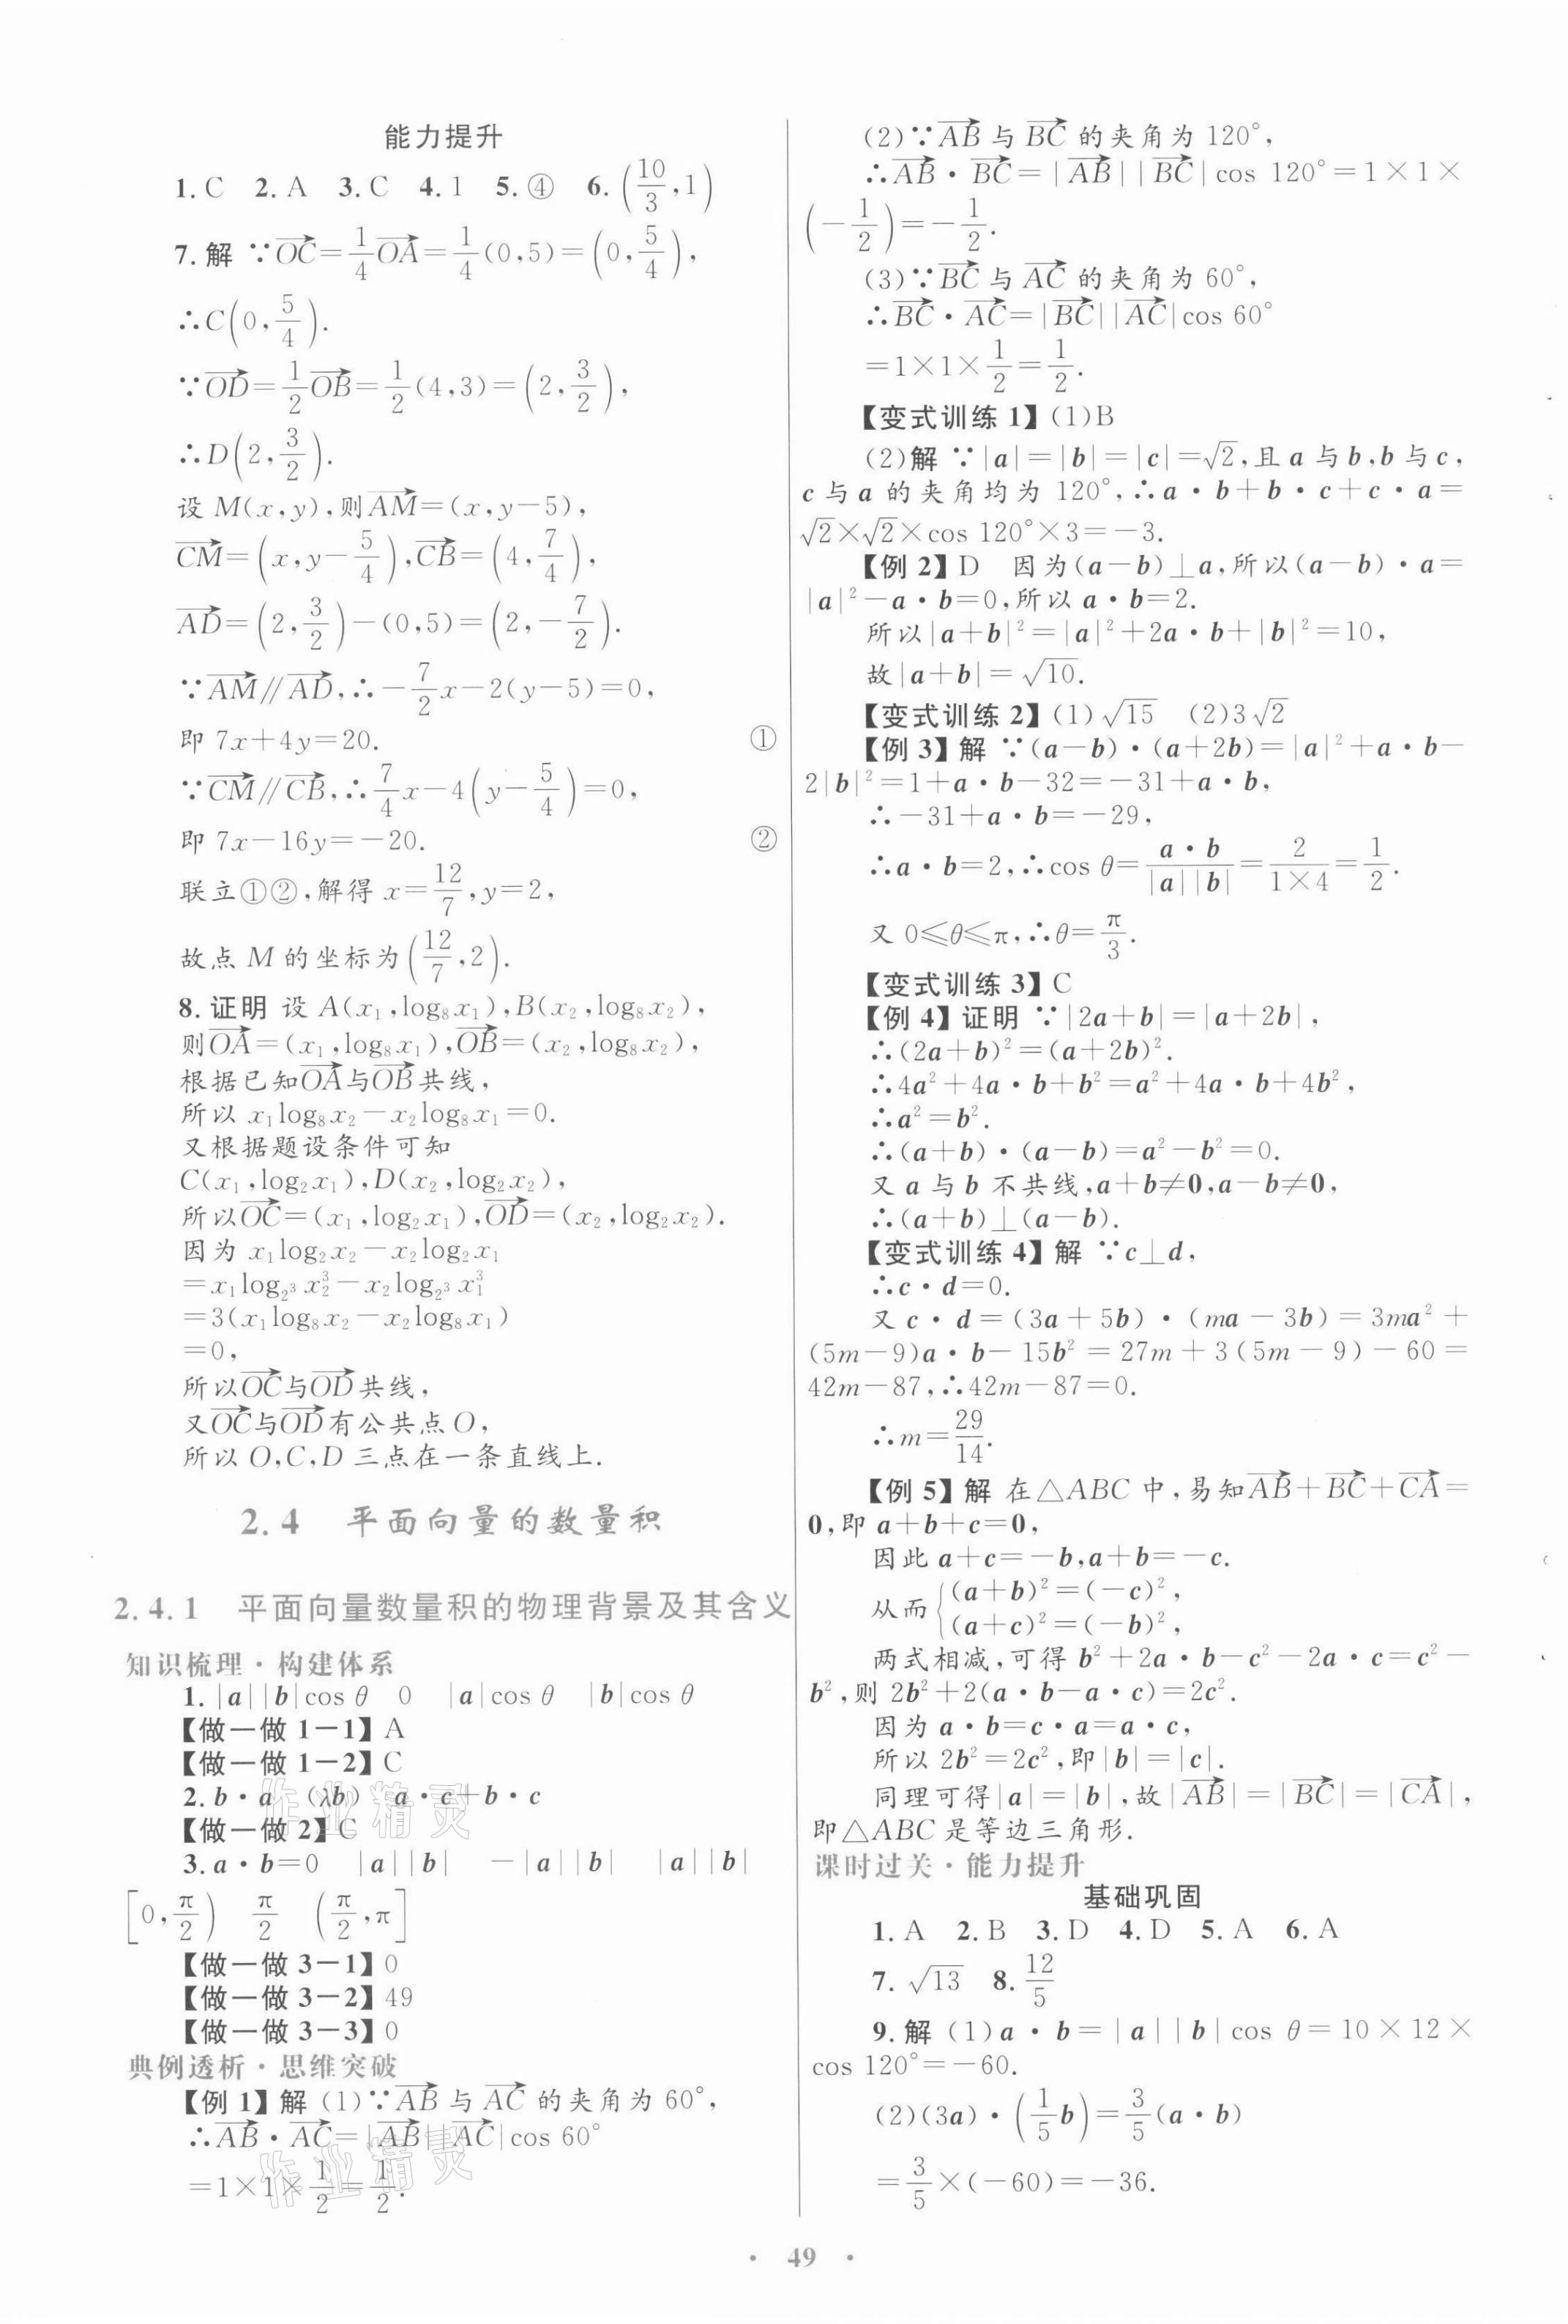 能力提升
1.C 2.A 3.C 4.1 5.④ 6.(10/3,1)
7.解 ∵OC→=1/4OA→=1/4(0,5)=(0,5/4),
∴C(0,5/4).
∵OD→=1/2OB→=1/2(4,3)=(2,3/2),
∴D(2,3/2).
设 M(x,y),则AM→=(x,y-5),
CM→=(x,y-5/4),CB→=(4,7/4),
AD→=(2,3/2)-(0,5)=(2,-7/2).
∵AM→∥AD→,∴-7/2x-2(y-5)=0,
即 7x+4y=20. ①
∵CM→∥CB→,∴7/4x-4(y-5/4)=0,
即 7x-16y=-20. ②
联立①②,解得 x=12/7,y=2,
故点 M 的坐标为(12/7,2).
8.证明 设 A(x₁,log₈x₁),B(x₂,log₈x₂),
则OA→=(x₁,log₈x₁),OB→=(x₂,log₈x₂),
根据已知OA→与OB→共线,
所以 x₁log₈x₂-x₂log₈x₁=0.
又根据题设条件可知
C(x₁,log₂x₁),D(x₂,log₂x₂),
所以OC→=(x₁,log₂x₁),OD→=(x₂,log₂x₂).
因为 x₁log₂x₂-x₂log₂x₁
=x₁log_{2³}x₂³-x₂log_{2³}x₁³
=3(x₁log₈x₂-x₂log₈x₁)
=0,
所以OC→与OD→共线,
又OC→与OD→有公共点 O,
所以 O,C,D 三点在一条直线上.
2.4 平面向量的数量积
2.4.1 平面向量数量积的物理背景及其含义
知识梳理·构建体系
1.|a||b|cos θ 0 |a|cos θ |b|cos θ
【做一做 1-1】A
【做一做 1-2】C
2.b·a (λb) a·c+b·c
【做一做 2】C
3.a·b=0 |a||b| -|a||b| |a||b|
[0,π/2) π/2 (π/2,π]
【做一做 3-1】0
【做一做 3-2】49
【做一做 3-3】0
典例透析·思维突破
【例 1】解 (1)∵AB→与AC→的夹角为 60°,
∴AB→·AC→=|AB→||AC→|cos 60°
=1×1×1/2=1/2.
(2)∵AB→与BC→的夹角为 120°,
∴AB→·BC→=|AB→||BC→|cos 120°=1×1×
(-1/2)=-1/2.
(3)∵BC→与AC→的夹角为 60°,
∴BC→·AC→=|BC→||AC→|cos 60°
=1×1×1/2=1/2.
【变式训练 1】(1)B
(2)解 ∵|a|=|b|=|c|=√2,且 a 与 b,b 与 c,
c 与 a 的夹角均为 120°,∴a·b+b·c+c·a=
√2×√2×cos 120°×3=-3.
【例 2】D 因为(a-b)⊥a,所以(a-b)·a=
|a|²-a·b=0,所以 a·b=2.
所以|a+b|²=|a|²+2a·b+|b|²=10,
故|a+b|=√10.
【变式训练 2】(1)√15 (2)3√2
【例 3】解 ∵(a-b)·(a+2b)=|a|²+a·b-
2|b|²=1+a·b-32=-31+a·b,
∴-31+a·b=-29,
∴a·b=2,∴cos θ=a·b/|a||b|=2/1×4=1/2.
又 0≤θ≤π,∴θ=π/3.
【变式训练 3】C
【例 4】证明 ∵|2a+b|=|a+2b|,
∴(2a+b)²=(a+2b)².
∴4a²+4a·b+b²=a²+4a·b+4b²,
∴a²=b².
∴(a+b)·(a-b)=a²-b²=0.
又 a 与 b 不共线,a+b≠0,a-b≠0,
∴(a+b)⊥(a-b).
【变式训练 4】解 ∵c⊥d,
∴c·d=0.
又 c·d=(3a+5b)·(ma-3b)=3ma²+
(5m-9)a·b-15b²=27m+3(5m-9)-60=
42m-87,∴42m-87=0.
∴m=29/14.
【例 5】解 在△ABC 中,易知AB→+BC→+CA→=
0,即 a+b+c=0,
因此 a+c=-b,a+b=-c.
从而{(a+b)²=(-c)²,
(a+c)²=(-b)²,
两式相减,可得 b²+2a·b-c²-2a·c=c²-
b²,则 2b²+2(a·b-a·c)=2c².
因为 a·b=c·a=a·c,
所以 2b²=2c²,即|b|=|c|.
同理可得|a|=|b|,故|AB→|=|BC→|=|CA→|,
即△ABC 是等边三角形.
课时过关·能力提升
基础巩固
1.A 2.B 3.D 4.D 5.A 6.A
7.√13 8.12/5
9.解 (1)a·b=|a||b|cos θ=10×12×
cos 120°=-60.
(2)(3a)·(1/5b)=3/5(a·b)
=3/5×(-60)=-36.
作业精灵
作业精灵
· 49 ·